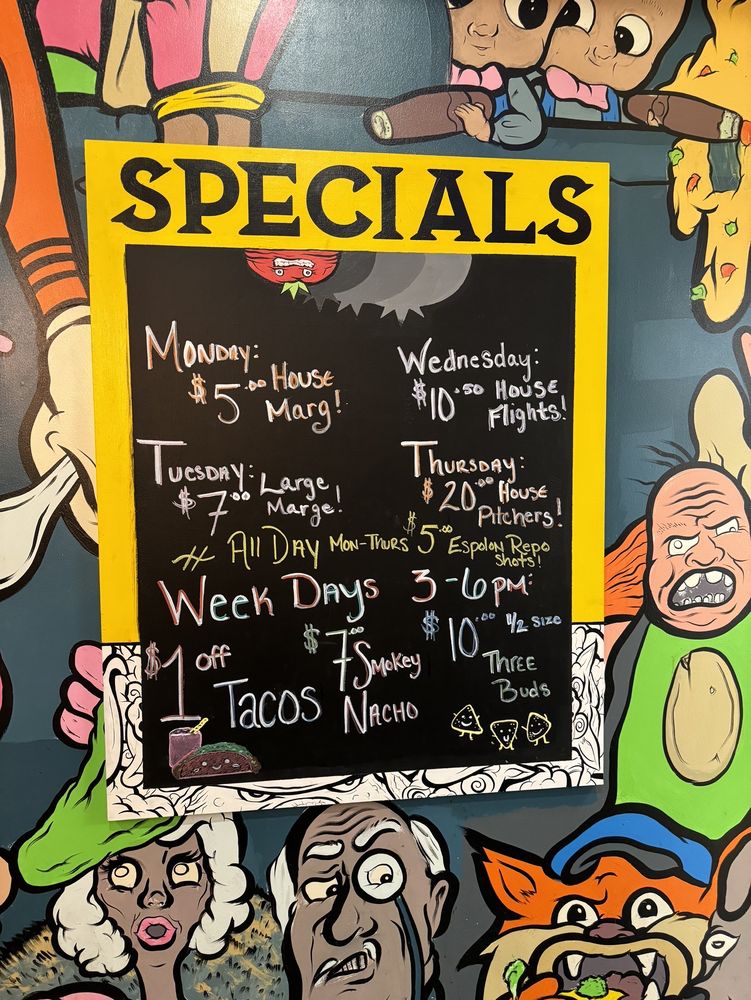 SPECIALS
MONDAY:
$5.00 HOUSE
Marg!
Wednesday:
$10.50 HOUSE
Flights!
TUESDAY:
$7.00 Large
Marge!
THURSDAY:
$20.00 HOUSE
Pitchers!
All DAY MON-THURS $5.00 ESPOLON REPO
SHOTS!
WEEK DAYS 3-6PM:
$1 off
TACOS
$7.00 SMOKEY
NACHO
$10.00 1/2 SIZE
THREE
BUDS